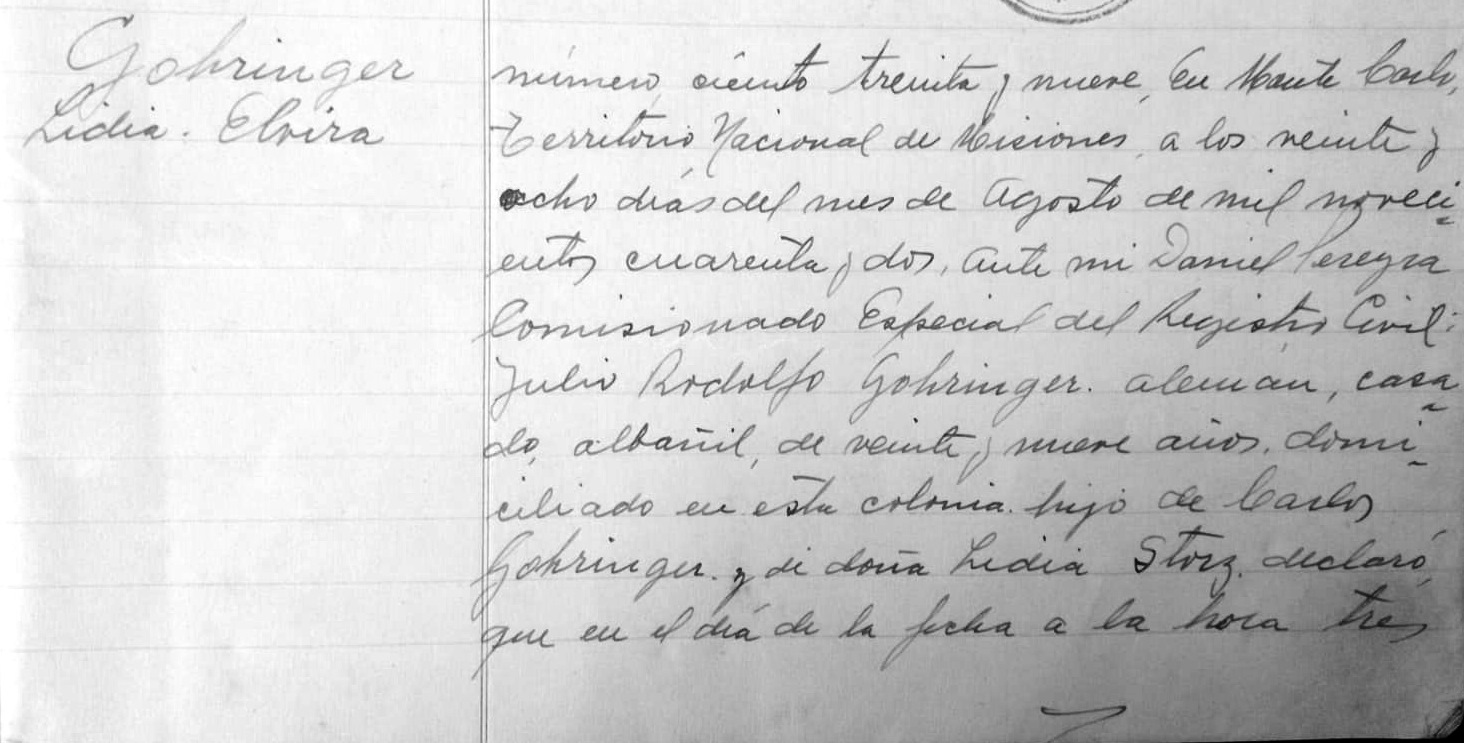 Gohringer
Lidia. Elvira
número, ciento treinta y nueve, En Monte Carlo,
Territorio Nacional de Misiones, a los veinte y
ocho días del mes de Agosto de mil noveci-
entos cuarenta y dos, ante mi Daniel Pereyra
Comisionado Especial del Registro Civil:
Julio Rodolfo Gohringer. alemán, casa-
do, albañil, de veinte y nueve años, domi-
ciliado en esta colonia. hijo de Carlos
Gohringer. y de doña Lidia Storz. declaró,
que en el día de la fecha a la hora tres